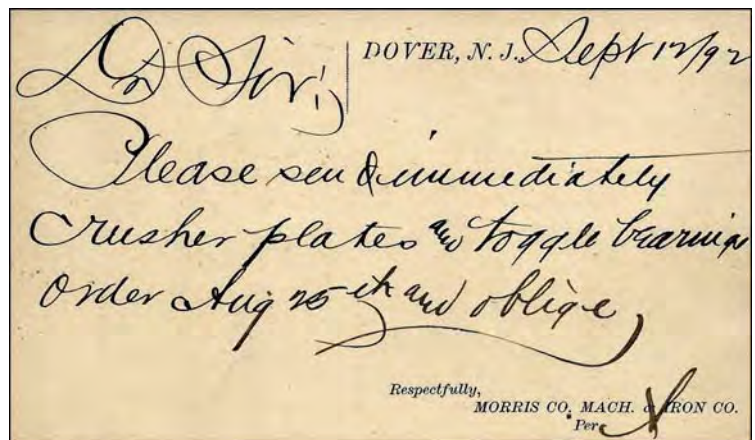 Dr Sir;
DOVER, N. J., Sept 12/92
Please send immediately
crusher plates and toggle bearings
order Aug 25th and oblige
Respectfully,
MORRIS CO. MACH. & IRON CO.
Per